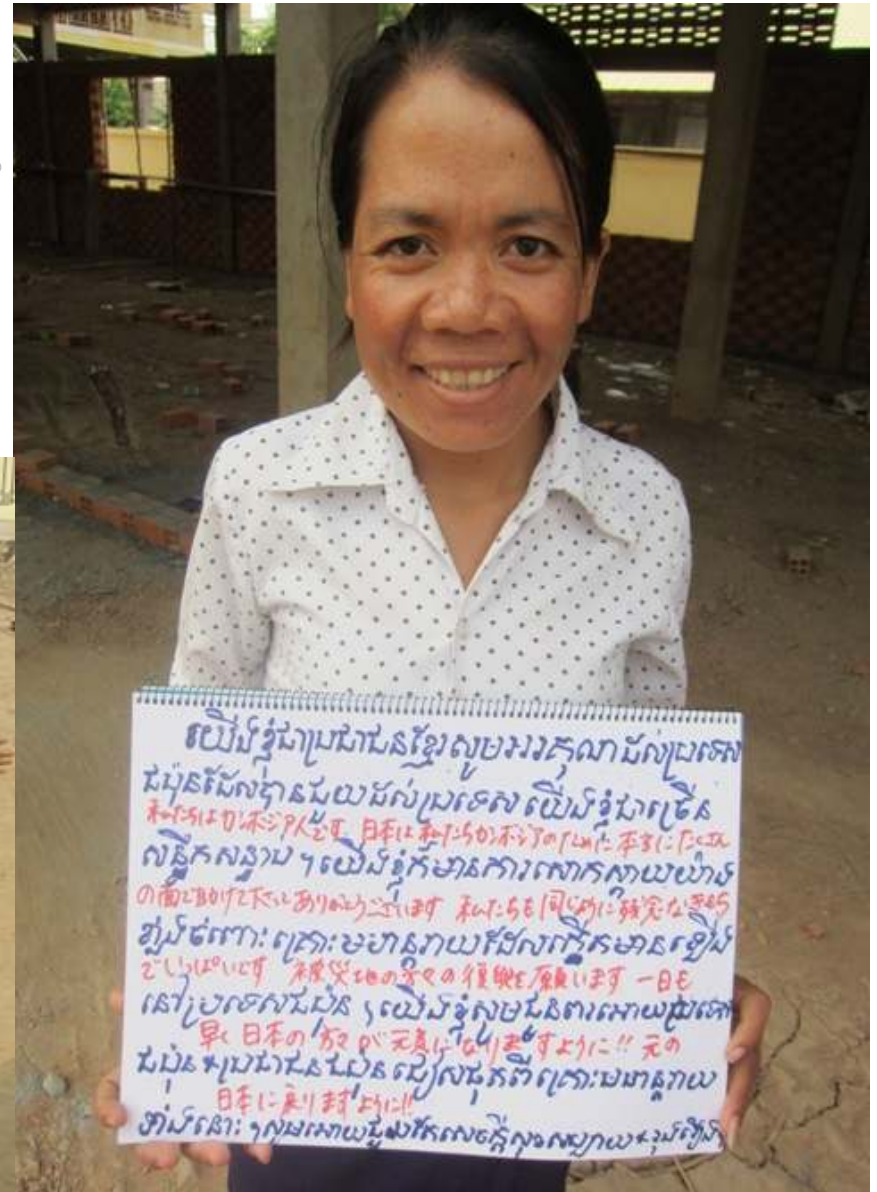 យើងខ្ញុំជាប្រជាជនខ្មែរសូមអរគុណដល់ប្រទេស
ជប៉ុនដែលបានជួយដល់ប្រទេសយើងខ្ញុំជាច្រើន
私たちはカンボジア人です 日本は私たちカンボジアのために本当にたくさん
សន្ធឹកសន្ធាប ។ យើងខ្ញុំក៏មានការសោកស្តាយយ៉ាង
の面で助けて下さりありがとうございます 私たちも同じように残念な気持ち
ខ្លាំងចំពោះគ្រោះមហន្តរាយដែលកើតមានឡើង
でいっぱいです 被災地の方々の復興を願います 一日も
នៅប្រទេសជប៉ុន ។ យើងខ្ញុំសូមជូនពរអោយប្រទេស
早く日本の方々が元気になりますように!! 元の
ជប៉ុន ប្រជាជនជប៉ុនជៀសផុតពីគ្រោះមហន្តរាយ
日本に戻りますように!!
ទាំងនោះ ។ សូមអោយជួបតែសេចក្តីសុខសប្បាយ